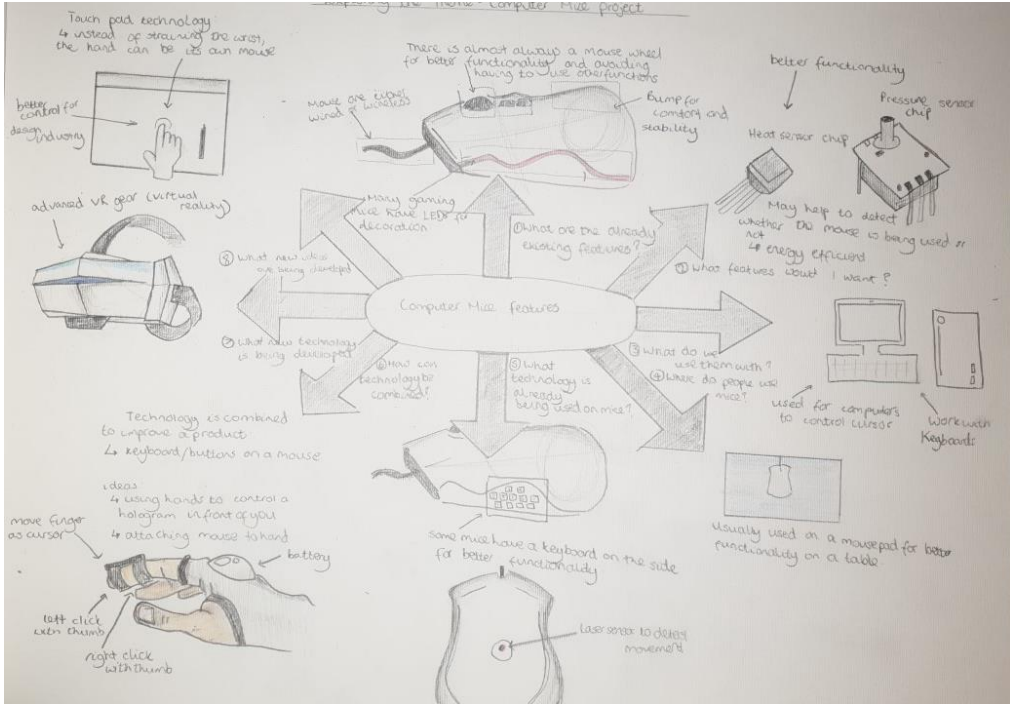 the Theme - Computer Mice project
Touch pad technology
↳ instead of straining the wrist,
the hand can be its own mouse
better
control for
design
industry
There is almost always a mouse wheel
for better functionality and avoiding
having to use other functions
Mouse are either
wired or wireless
Bump for
comfort and
stability
Many gaming
mice have LEDs for
decoration
better functionality
Pressure sensor
chip
Heat sensor chip
May help to detect
whether the mouse is being used or
not
↳ energy efficient
advanced VR gear (virtual
reality)
① What are the already
existing features?
② What features would I want?
⑧ What new ideas
are being developed
Computer Mice features
⑦ What new technology
is being developed
⑥ How can
technology be
combined?
⑤ What
technology is
already
being used on mice?
③ What do we
use them with?
④ Where do people use
mice?
used for computers
to control cursor
Work with
Keyboards
Technology is combined
to improve a product
↳ keyboard/buttons on a mouse
ideas
↳ using hands to control a
hologram in front of you
↳ attaching mouse to hand
move finger
as cursor
battery
left click
with thumb
right click
with thumb
some mice have a keyboard on the side
for better functionality
usually used on a mousepad for better
functionality on a table
Laser sensor to detect
movement